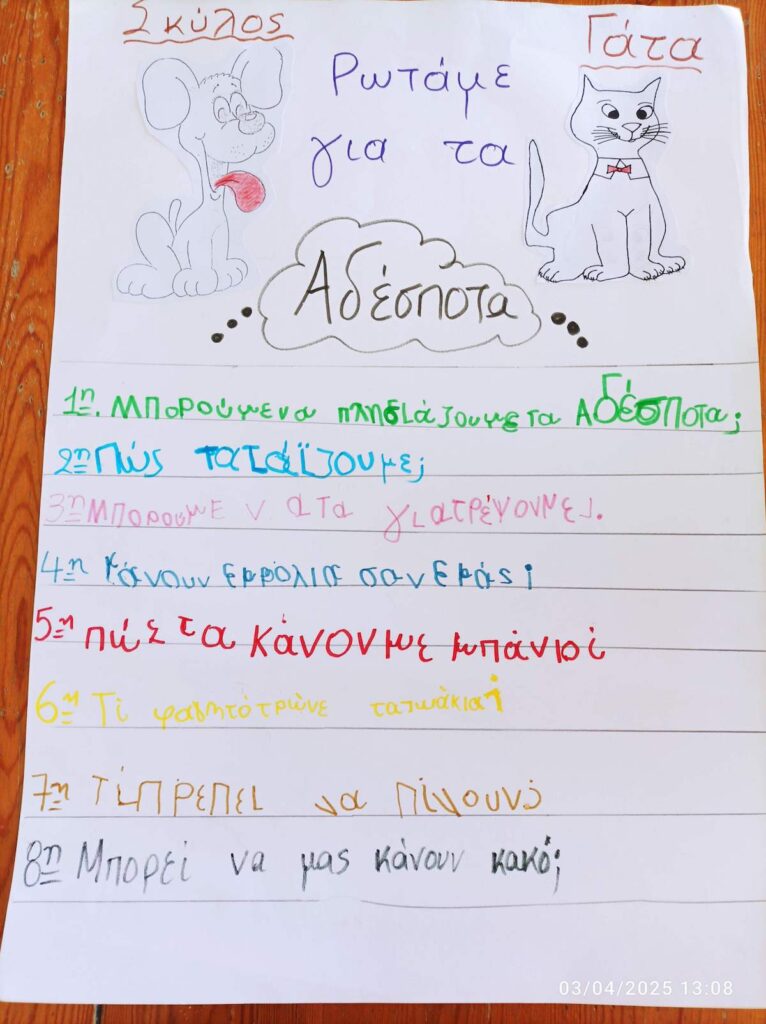 Σκύλος
Γάτα
Ρωτάμε
για τα
Αδέσποτα
1η. Μπορούμε να πλησιάζουμε τα Αδέσποτα;
2η Πώς τα ταΐζουμε;
3η Μπορουμε ν α τα γιατρέψουμε;.
4η Κάνουν εμβόλια σαν εμάς;
5η πώς τα κάνουμε μπάνιο;
6η Τί φαγητό τρώνε τα
7η Τί πρέπει να πίνουν;
8η Μπορεί να μας κάνουν κακό;
03/04/2025 13:08